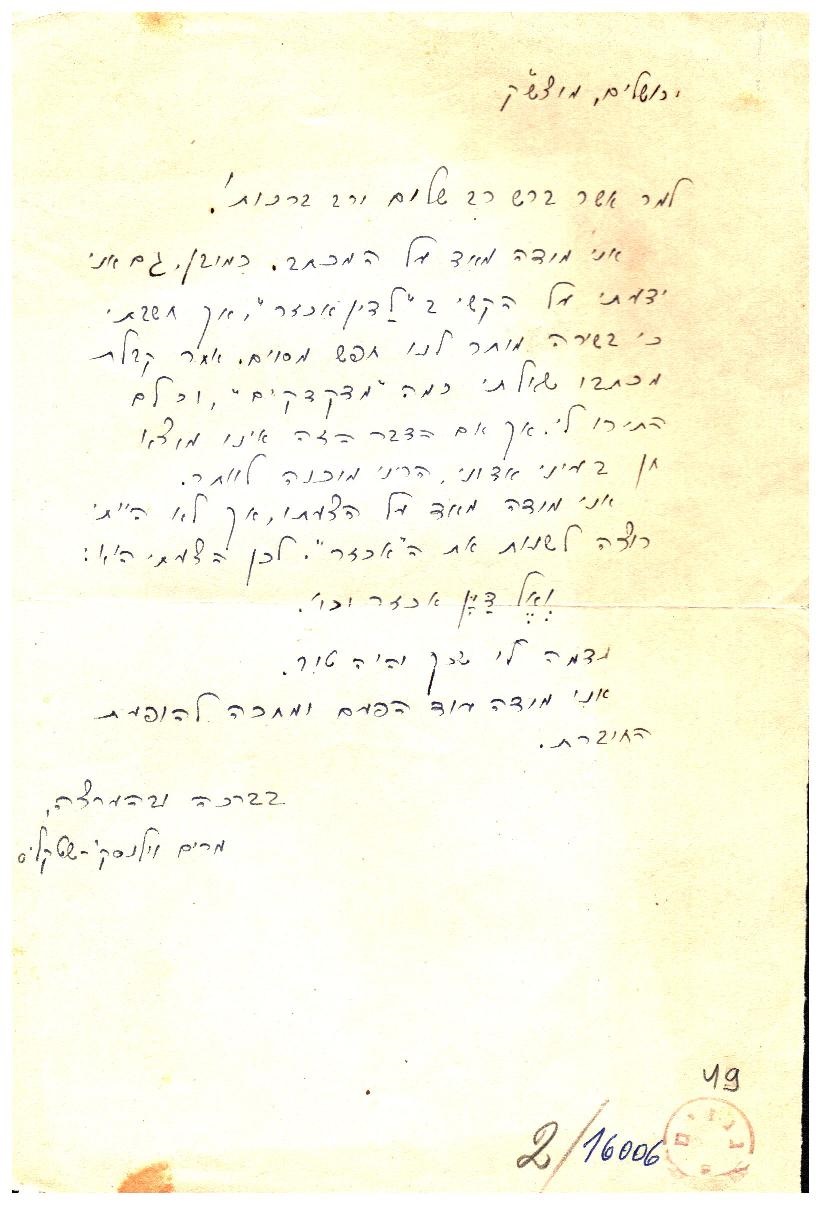 ירושלים, מוצש"ק
למר אשר ברש רב שלום ורב ברכות!
אני מודה מאד על המכתב. כמובן, גם אני
ידעתי על הקשי ב"לַדין אכזר", אך חשבתי
כי בשירה מותר לנו חפש מסוים. אחר קבלת
מכתבו שאלתי כמה "מדקדקים", וכלם
התירו לי. אך אם הדבר הזה אינו מוצא
חן בעיני אדוני, הריני מוכנה לוותר.
אני מודה מאד על הצעתו, אך לא הייתי
רוצה לשנות את ה"אכזר". לכן הצעתי היא:
וְאֶל דַּיָּן אכזר וכו'.
נדמה לי שכך יהיה טוב.
אני מודה עוד הפעם ומחכה להופעת
החוברת.
בברכה ובהערצה,
מרים וילנסקי-שטקליס
49
2/16006